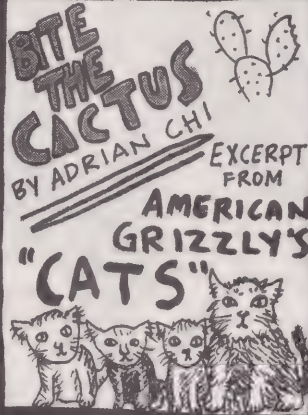 BITE
THE
CACTUS
BY ADRIAN CHI
EXCERPT
FROM
AMERICAN
GRIZZLY'S
"CATS"